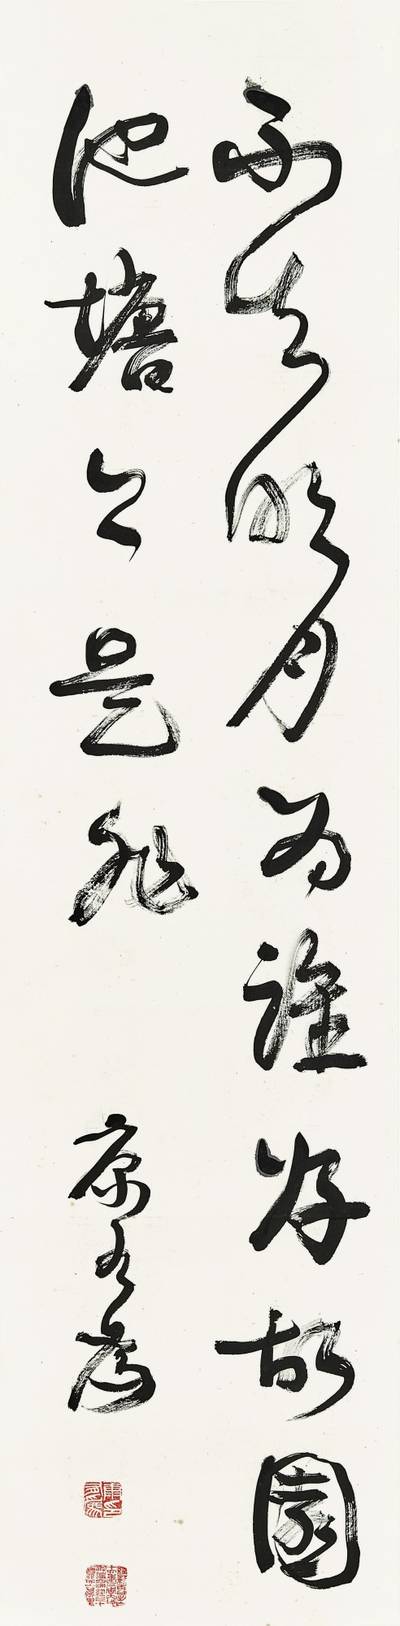 不知明月為誰好故園
池塘今是非
康有為